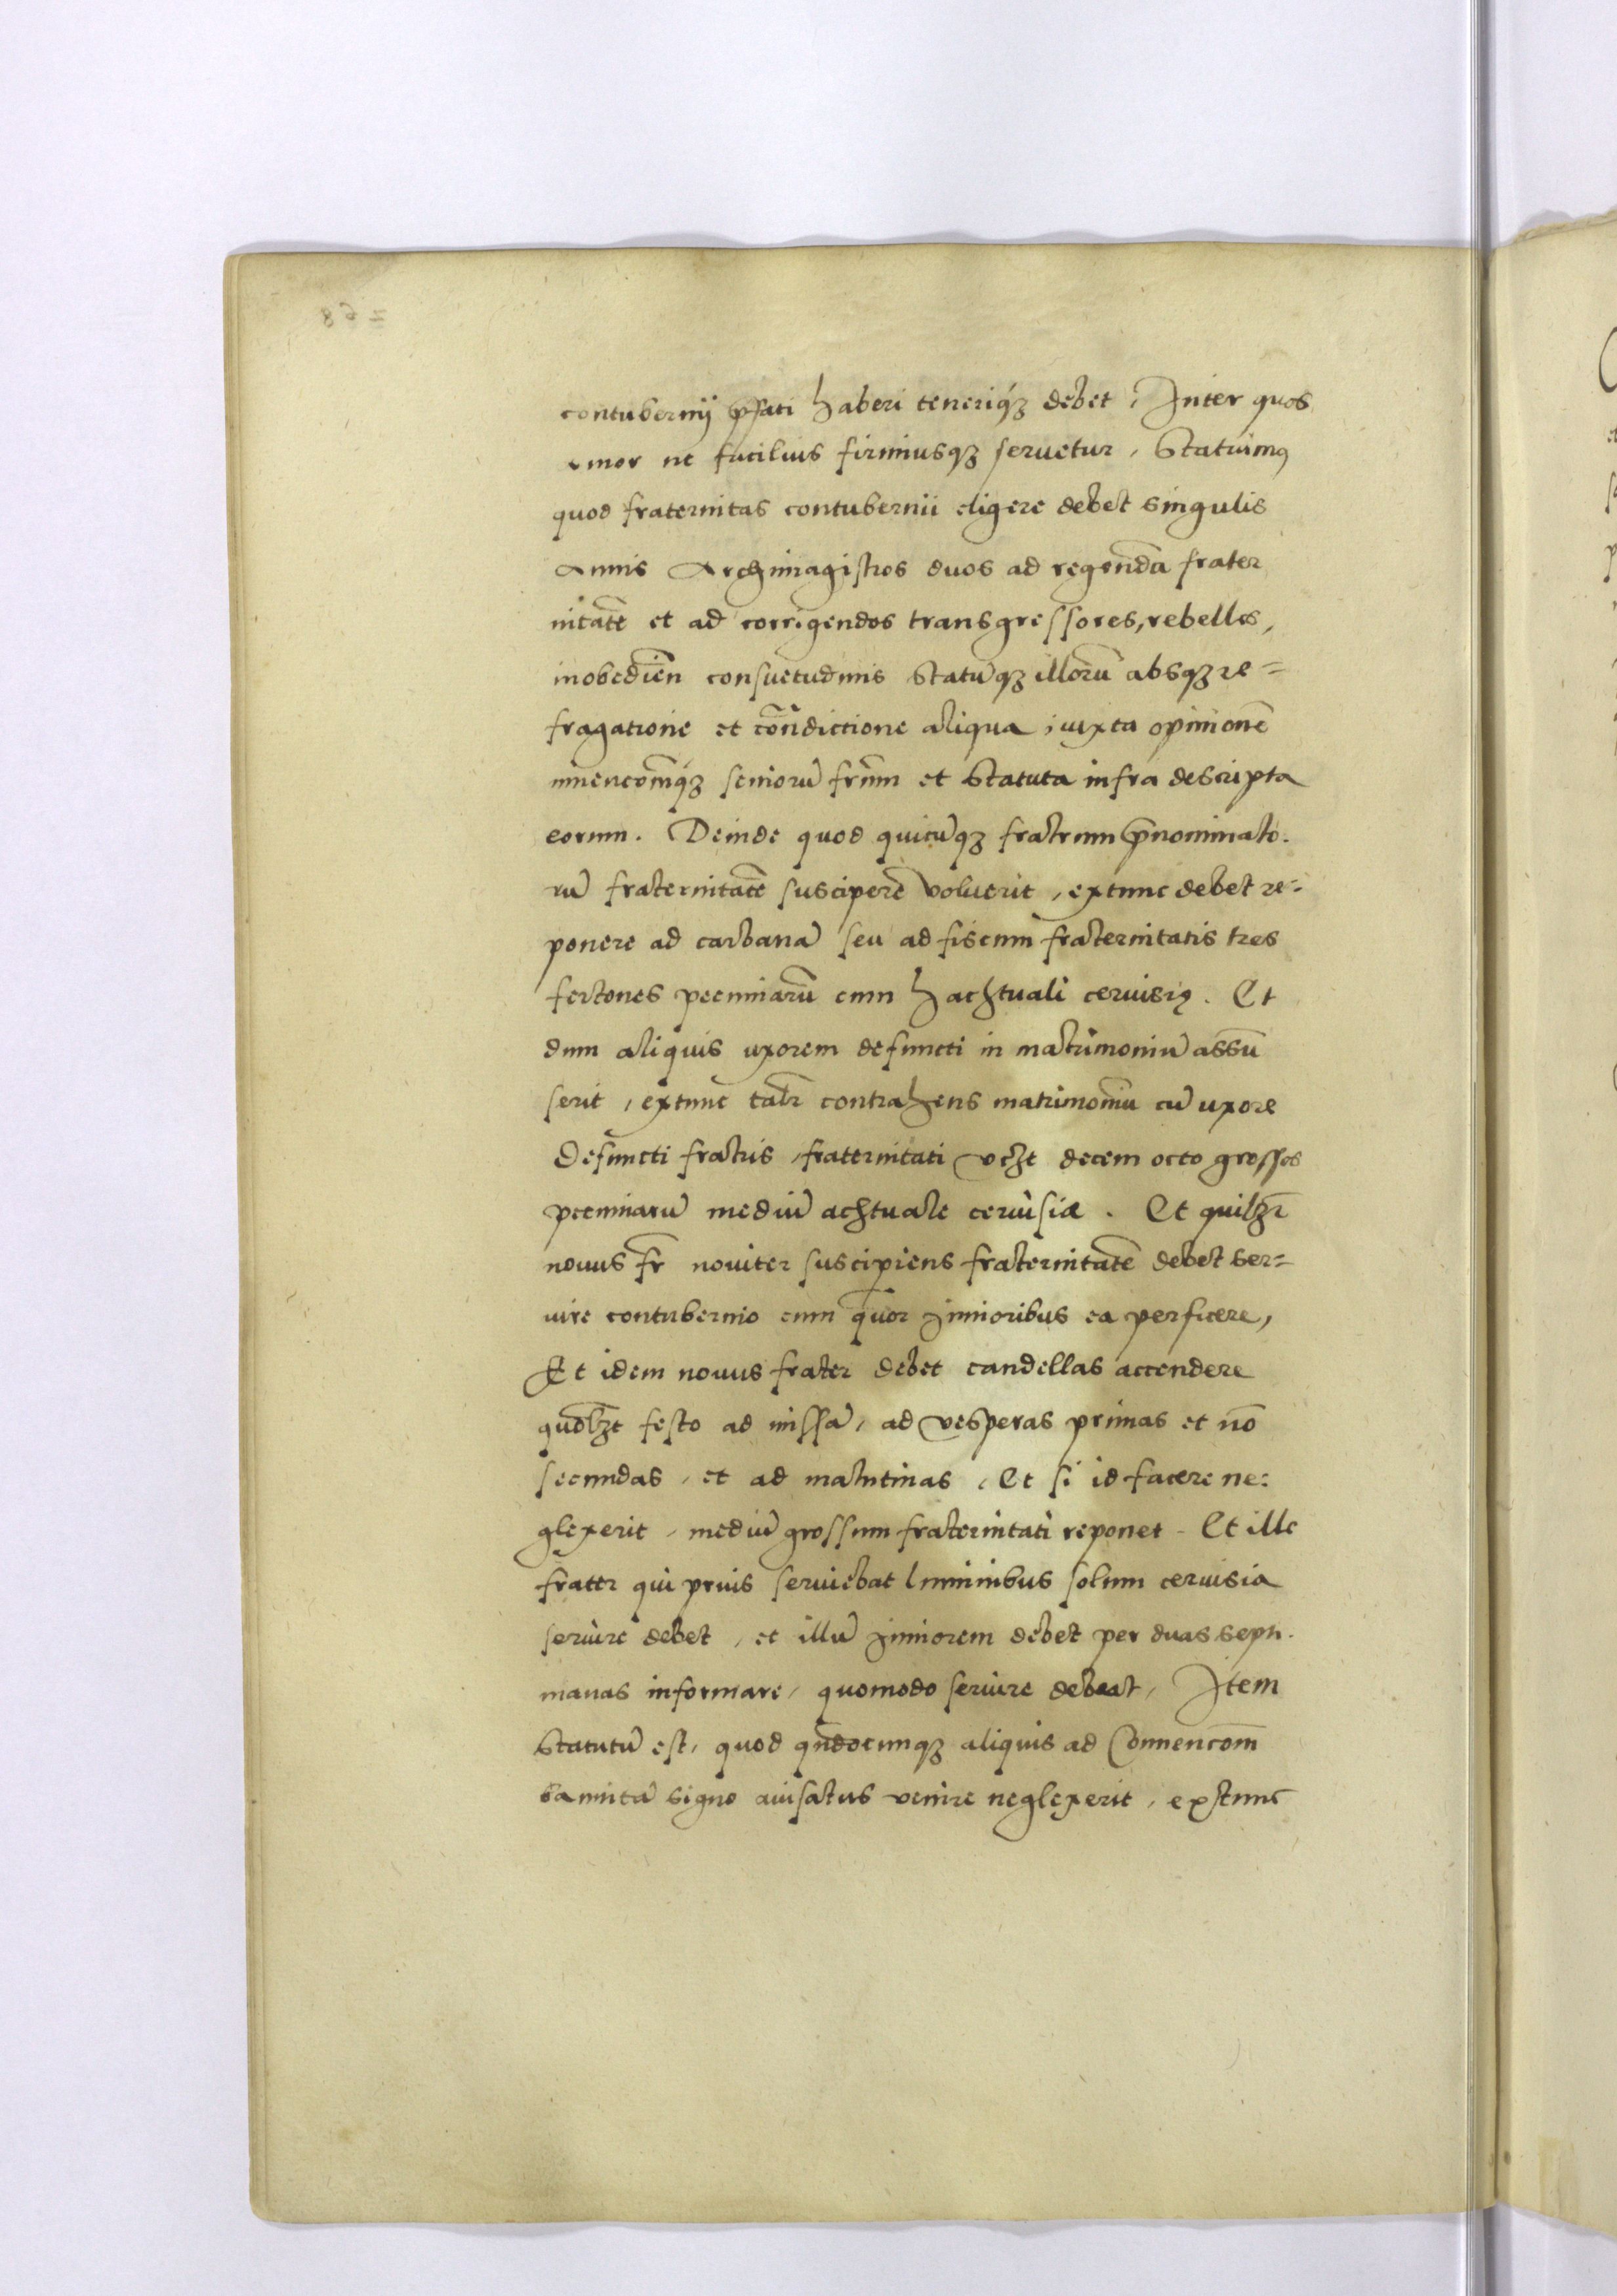 contubernij p̄fati haberi teneriq́ꝫ debet, Inter quos
amor ne facilius firmiusqꝫ seruetur, Statuimꝯ
quod fraternitas contubernii eligere debet singulis
Annis Archimagistros duos ad regendā frater
nitatē et ad corrigendos transgressores, rebelles,
inobedien̄ consuetudinis statūqꝫ illorū absqꝫ re=
fragatione et con̄dictione aliqua iuxta opinionē
seniorū frm̄ et Statuta infra descripta
eorum. Deinde quod quicūqꝫ fratrum p̄nominato.
rū fraternitatē suscipere voluerit, extunc debet re=
ponere ad carbanā seu ad fiscum fraternitatis tres
fertones pecuniarū cum hachtuali ceruisię. Et
dum aliquis uxorem defuncti in matrimoniū assūm
serit, extunc tal̄r contrahens matrimoniū cū uxore
Defuncti fratris, fraternitati decem octo grossos
pecuniarū mediū achtuale ceruisiæ. Et quilꝫ
nouus fr̄ nouiter suscipiens fraternitatē debet ser=
uire contubernio cum quor iunioribus ea perficere,
Et idem nouus frater debet candellas accendere
quolꝫt festo ad missā, ad vesperas primas et nō
secundas, et ad matutinas, Et si id facere ne:
glexerit, mediū grossum fraternitati reponet. Et ille
frater qui prius seruiebat luminibus solum ceruisia
seruire debet, et illū iuniorem debet per duas septi.
manas informare, quomodo seruire debeat, Item
Statutū est, quod qn̄docunqꝫ aliquis ad Conuencōm̄
bannitā signo auisatus venire neglexerit, extunc